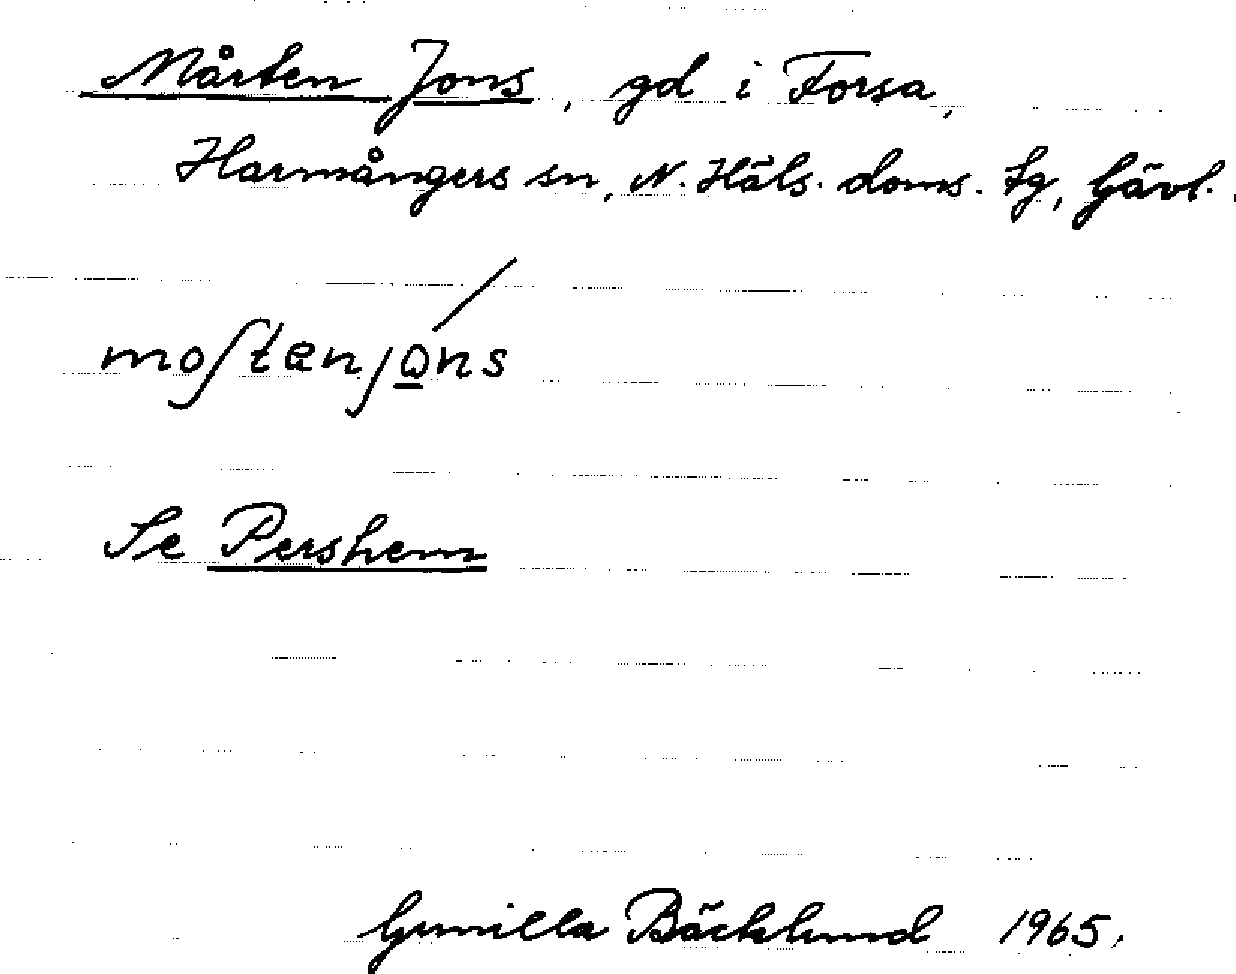 Mårten Jons, gd i Forsa,
Harmångers sn, N. Häls. doms. tg, Gävl.
moſtenjo̲ns
Se Pershem
Gunilla Bäcklund 1965.